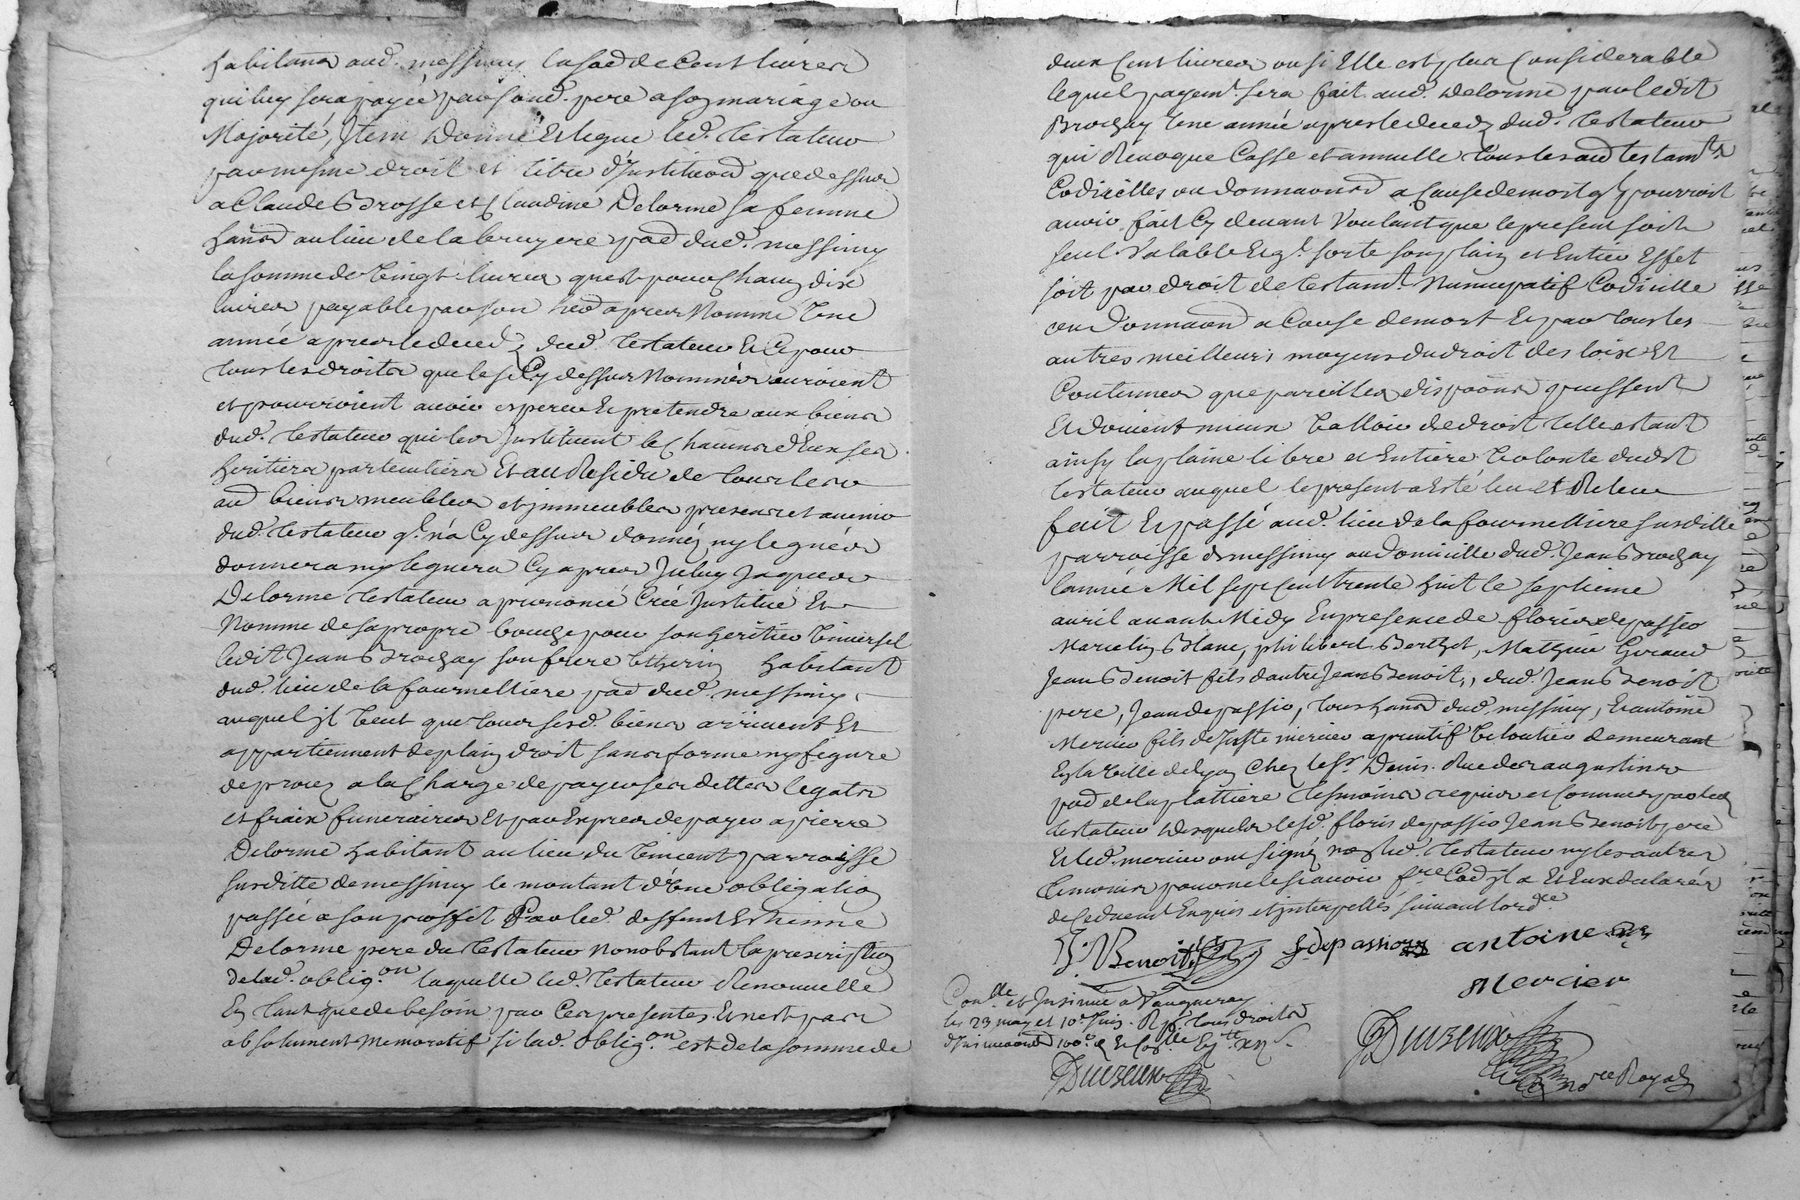 habitans aud. messimy la so&#773;e de Cent livres
qui luy sera payée par sond. pere a son mariage ou
Majorité, Item Donne et legue led. testateur
par mesme droit et titre d'Institu&#773;on que dessus
a Claude Brosse et Claudine Delorme sa femme
hans au lieu de la bruyere par dud. messimy
la somme de vingt livres quest pour chacun dix
livres payable par son her apres Nommé Une
année apres le deced dud. testateur Et Ce pour
tous les droits que les Cy dessus Nommés auroient
et pourroient avoir esperer et pretendre aux biens
dud. testateur qui les Instituent le chacuns d'Eux ses
heritiers particuliers Et au Residu de tous les
aud biens meubles et immeubles presens et avenir
dud. testateur qi. n'a Cy dessus donnés ny legués
donnera ny leguera Cy apres Iceluy Jaques
Delorme testateur a prononcé Créé Institué Et
Nomme de sa propre bouche pour son heritier Universel
ledit Jean Brochay son frere Utherin habitant
dud. lieu de la fourmelliere par dud. messimy,
auquel il veut que tous sesd. biens arrivent Et
appartiennent de plain droit sans forme ny figure
de procez a la Charge de payer ses dettes legats
et fraix funeraires Et par Expres de payer a pierre
Delorme habitant au lieu du Vincent parroisse
susditte de messimy le montant d'Une obligation
passée a son proffit Par led. deffunt Estienne
Delorme pere du testateur Nonobstant la prescription
de lad. oblig.on laquelle led. testateur Renouvelle
En tant que de besoin par Ces presentes Et n'est pas
absolument Memoratif si lad. oblig.on est de la somme de
deux Cent livres ou si Elle est plus Considerable
lequel payemt. sera fait aud. Delorme par ledit
Brochay Une année apres le deced dud. testateur
qui Revoque Casse et annulle tous les aud testamts.
Codicilles ou donna&#773;ons a Cause de mort ql. pourroit
avoir fait Cy devant Voulant que le present soit
seul Valable Et ql. sorte son plain et Entier Effet
soit par droit de testamt Nuncupatif Codicille
ou Donna&#773;on a Cause de mort Et par tous les
autres meilleurs moyens du droit des loix Et
Coutumes que pareilles dispo&#773;ons puissent
Et doivent mieux Valloir de droit telle estant
ainsy la plaine libre et Entiere Volonté dudit
testateur auquel le present a Esté leu et Releu
fait Et passé aud. lieu de la fourmelliere susditte
parroisse de messimy au Domicille dud. Jean Brochay
l'année Mil sept Cent trente huit le septieme
avril avant Midy En presence de floris depassio
Marcelin Blanc, philibert Berthet, Mathieu Giraud
Jean Benoit fils d'autre Jean Benoit, dud. Jean Benoit
pere, Jean depassio, tous hans dud. messimy, Et antoine
Mercier fils de Juste mercier aprentif Veloutier demeurant
En la Ville de Lyon Chez le Sr. Denis Rue des augustins
par de la plattiere tesmoins requis et Connus par led
testateur desquels lesd. floris depassio Jean Benoit pere
Et led. mercier ont signez non led. testateur ny les autres
temoins pour ne le sçavoir fre. Co&#773;e Il a Et Eux declarés
de Ce duemt. Enquis et interpellés suivant l'ordce.
J. Benoit f depassio antoine
Mercier
Conlle. et Insinué a Vaugneray
les 23 may et 10e. Juin